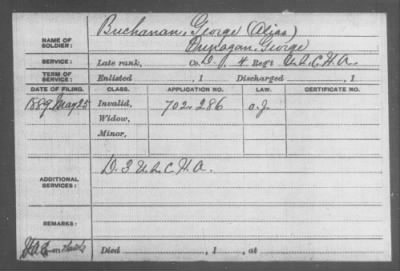 NAME OF SOLDIER: Buchanan, George (Alias)
George
SERVICE: Late rank, Co. D, 4 Reg't U.S.C.H.A.
TERM OF SERVICE: Enlisted , 1 Discharged , 1
DATE OF FILING. CLASS. APPLICATION NO. LAW. CERTIFICATE NO.
1889 May 25 Invalid, 702.286 O.L.
Widow,
Minor,
ADDITIONAL SERVICES: D. 3 U.S.C.H.A.
REMARKS:
Died , 1 , at